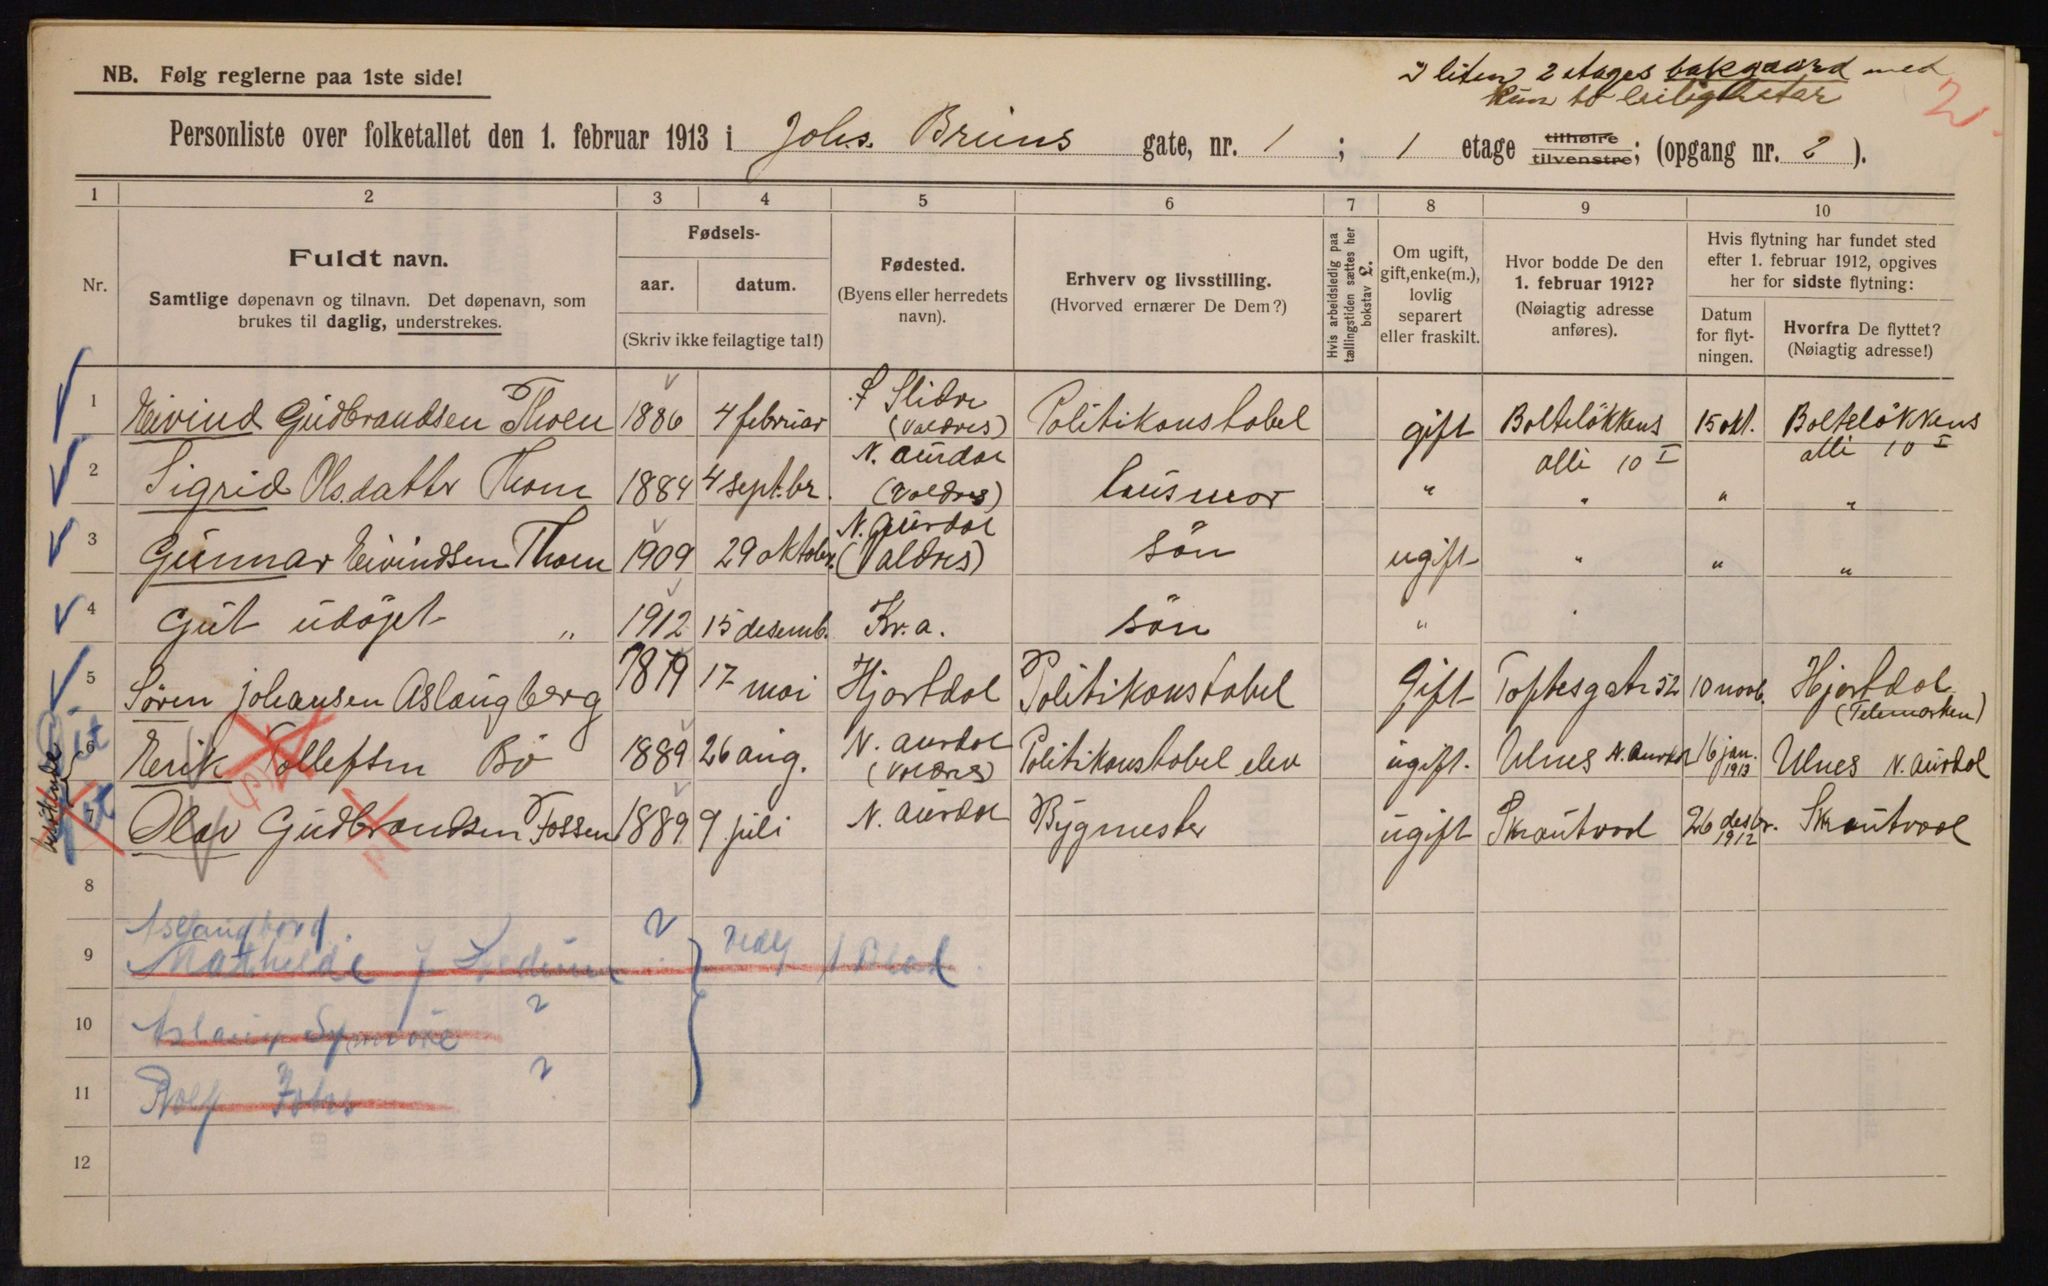 I liten 2 etages bakgaard med
kun to leiligheter
2
NB. Følg reglerne paa 1ste side!
Personliste over folketallet den 1. februar 1913 i Johs. Bruns gate, nr. 1 ; 1 etage tilhøire tilvenstre; (opgang nr. 2 ).
1 2 3 4 5 6 7 8 9 10
Nr.
Fuldt navn.
Samtlige døpenavn og tilnavn. Det døpenavn, som
brukes til daglig, understrekes.
Fødsels-
aar. datum.
(Skriv ikke feilagtige tal!)
Fødested.
(Byens eller herredets
navn).
Erhverv og livsstilling.
(Hvorved ernærer De Dem?)
Hvis arbeidsledig paa
tællingstiden sættes her
bokstav L.
Om ugift,
gift, enke(m.),
lovlig
separert
eller fraskilt.
Hvor bodde De den
1. februar 1912?
(Nøiagtig adresse
anføres).
Hvis flytning har fundet sted
efter 1. februar 1912, opgives
her for sidste flytning:
Datum
for flyt-
ningen.
Hvorfra De flyttet?
(Nøiagtig adresse!)
1 Eivind Gudbrandsen Thoen 1886 4 februar S Slidre (Valdres) Politikonstabel gift Bolteløkkens alle 10 I 15 okt. Bolteløkkens alle 10 I
2 Sigrid Olsdatter Thoen 1884 4 septbr. N. Aurdal (Valdres) husmor " " " "
3 Gunnar Eivindsen Thoen 1909 29 oktobr. N. Aurdal (Valdres) søn ugift " " "
4 Gut udøpt " 1912 15 desemb. Kr.a. søn " "
5 Søren Johansen Aslaugberg 1879 17 mai Hjartdal Politikonstabel gift Toftesgate 52 10 novb. Hjartdal (Telemarken)
6 Eirik Tollefsen Bø 1889 26 aug. N. Aurdal (Valdres) Politikonstabel elev ugift. Ulnes N. Aurdal 16 jan. 1913 Ulnes N. Aurdal
7 Olav Gudbrandsen Fossen 1889 9 juli N. Aurdal Bygmester ugift Skrautvaal 26 desbr. 1912 Skrautvaal
besøkende
ut
8
9 Mathilde
10 Aslaug
11 Rolf
12